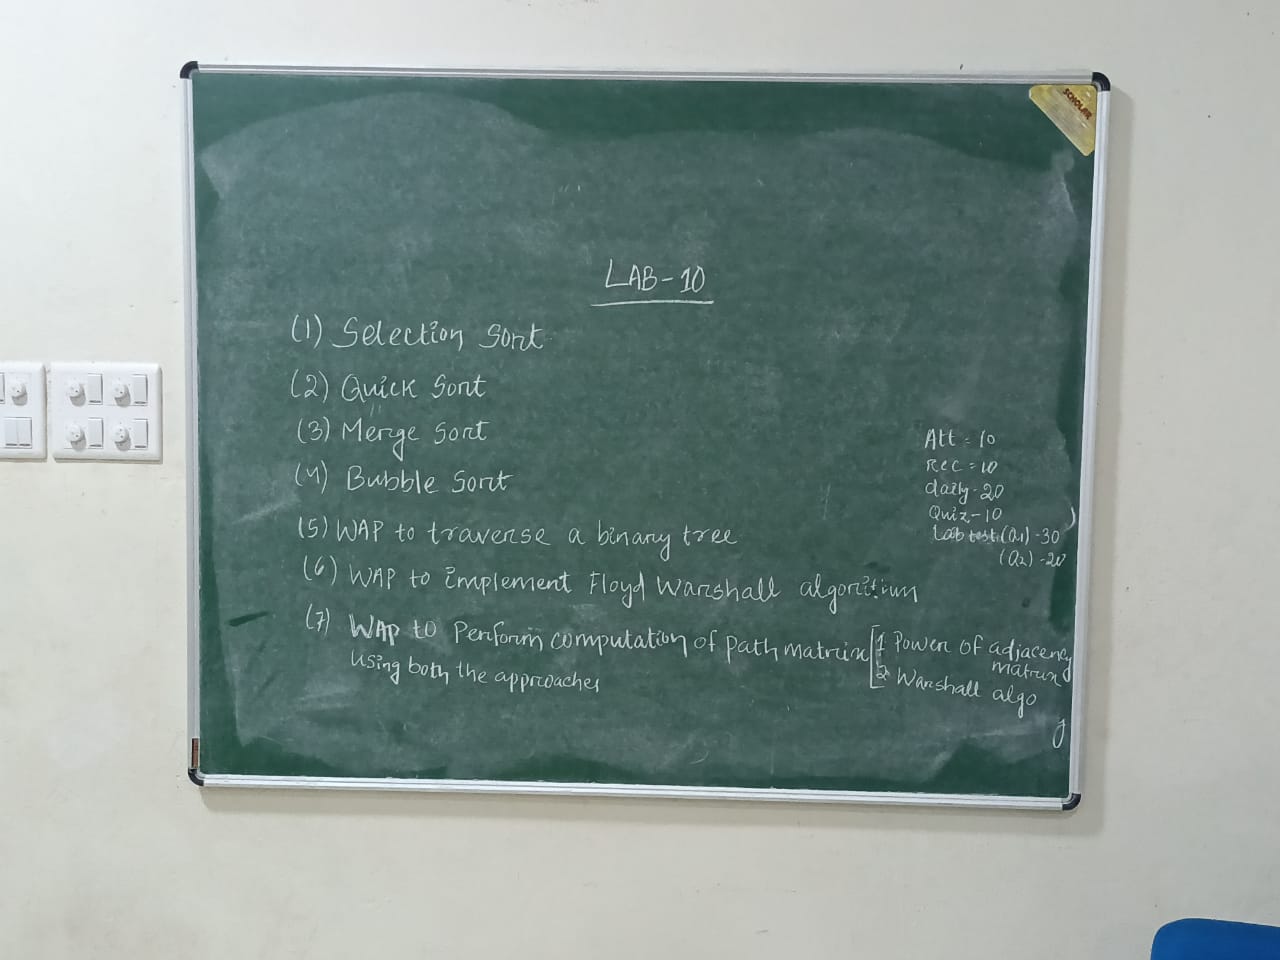 SCHOLAR
LAB-10
(1) Selection Sort
(2) Quick Sort
(3) Merge Sort
(4) Bubble Sort
(5) WAP to traverse a binary tree
(6) WAP to implement Floyd Warshall algorithm
(7) WAP to Perform computation of path matrix
using both the approaches
1 Power of adjacency
matrix
2 Warshall algo
Att = 10
Rec = 10
daily - 20
Quiz - 10
Lab test (Q1) - 30
(Q2) - 20